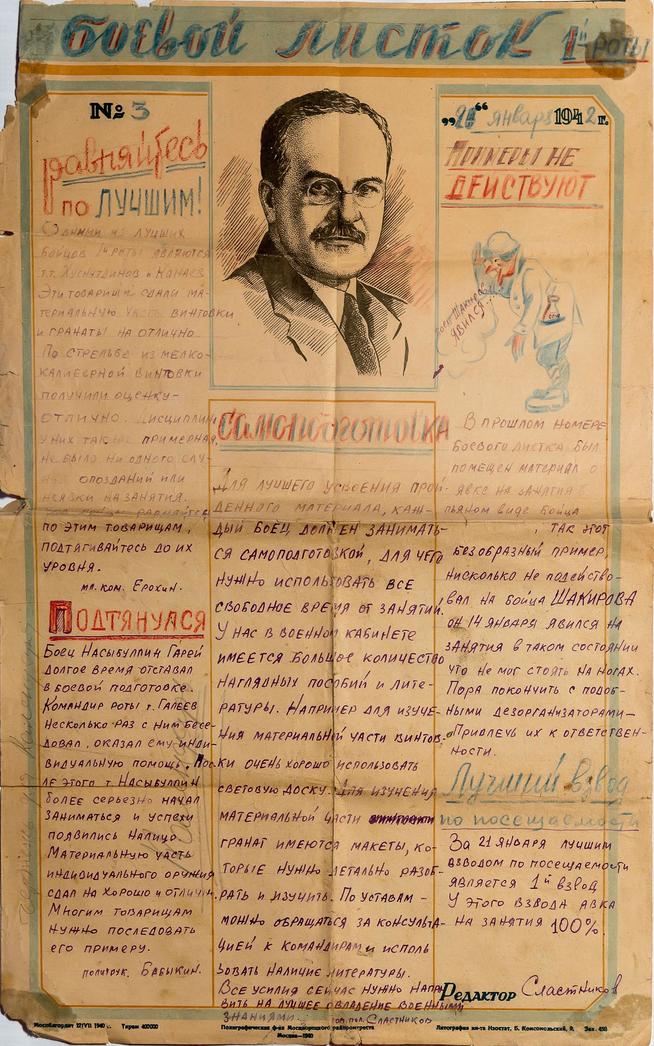 БОЕВОЙ ЛИСТОК 1й РОТЫ
№ 3
РАВНЯЙТЕСЬ
ПО ЛУЧШИМ!
Одними из лучших
бойцов 1й роты являются
т.т. Хуснутдинов и Канаев
Эти товарищи сдали ма-
териальную часть винтовки
и гранаты на отлично
По стрельбе из мелко-
калиберной винтовки
получили оценку-
отлично. Дисциплина
у них также примерная,
не было ни одного слу-
чая опозданий или
неявки на занятия.
равняйтесь
по этим товарищам,
подтягивайтесь до их
уровня.
мл. ком. Ерохин.
ПОДТЯНУЛСЯ
Боец Насыбуллин Гарей
долгое время отставал
в боевой подготовке.
Командир роты т. Галеев
несколько раз с ним бесе-
довал, оказал ему инди-
видуальную помощь. Пос-
ле этого т. Насыбуллин
более серьезно начал
заниматься и успехи
появились налицо.
Материальную часть
индивидуального оружия
сдал на хорошо и отлично.
Многим товарищам
нужно последовать
его примеру.
политрук. Бабыкин.
САМОПОДГОТОВКА
Для лучшего усвоения прой-
денного материала, каж-
дый боец должен занимать-
ся самоподготовкой, для чего
нужно использовать все
свободное время от занятий.
У нас в военном кабинете
имеется большое количество
наглядных пособий и лите-
ратуры. Например для изуче-
ния материальной части винтов-
ки очень хорошо использовать
световую доску. Для изучения
материальной части винтовки
гранат имеются макеты, ко-
торые нужно детально разоб-
рать и изучить. По уставам -
можно обращаться за консульта-
цией к командирам и исполь
зовать наличие литературы.
Все усилия сейчас нужно напра
вить на лучшее овладение военными
знаниями. Сластников
„26“ января 1942 г.
ПРИМЕРЫ НЕ
ДЕЙСТВУЮТ
боец Шакиров
явился...
В прошлом номере
боевого листка был
помещен материал о
явке на занятия в
пьяном виде бойца
, так этот
безобразный пример,
нисколько не подейство-
вал на бойца ШАКИРОВА
он 14 января явился на
занятия в таком состоянии
что не мог стоять на ногах.
Пора покончить с подоб-
ными дезорганизаторами—
Привлечь их к ответствен-
ности.
Лучший взвод
по посещаемости
За 21 января лучшим
взводом по посещаемости
является 1й взвод
У этого взвода явка
на занятия 100%.
Редактор Сластников
Мособлгорлит 12/VII 1940 г. Тираж 400000
Полиграфическая ф-ка
Москва—1940
Литография ин-та Изостат, Б. Комсомольский, Зак. 450